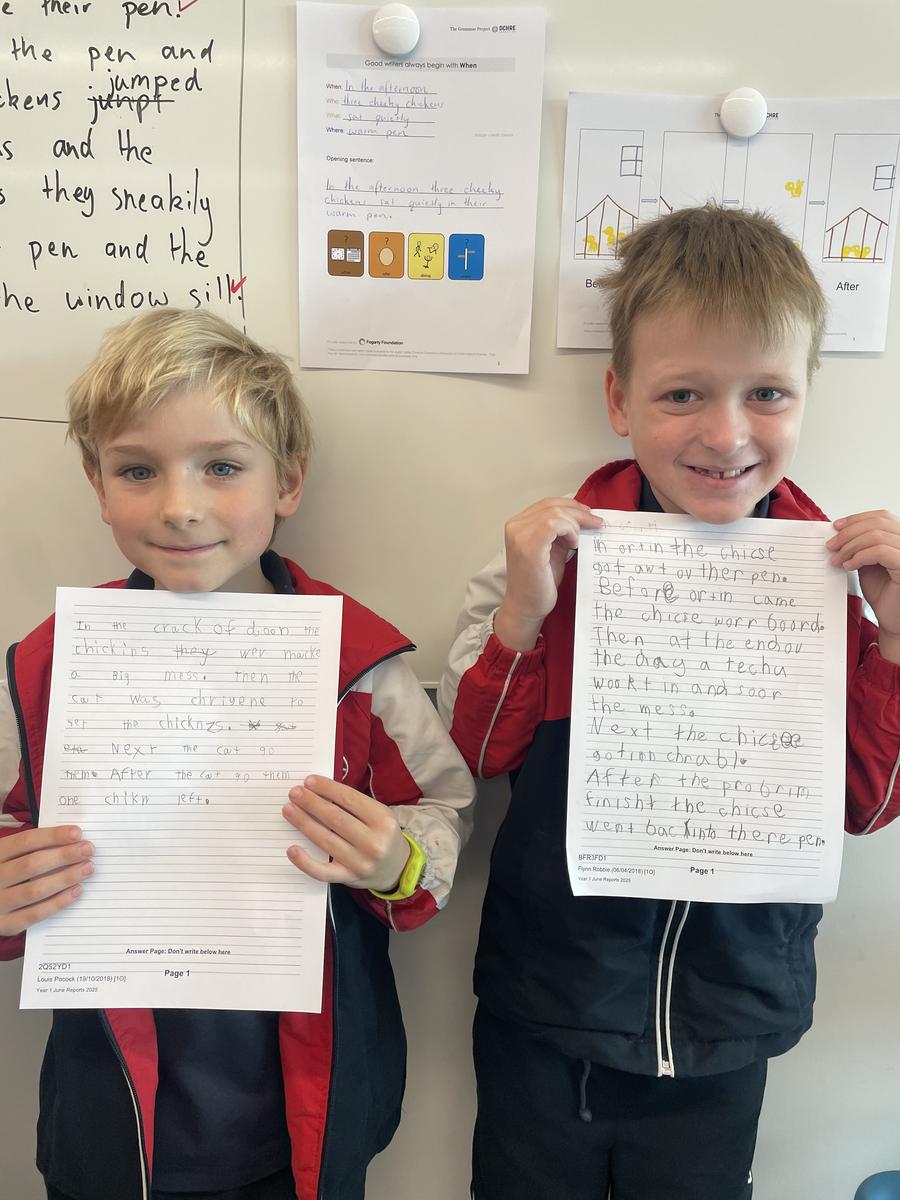 e their pen.
the pen and
jumped
ckens junpt
s and the
s they sneakily
pen and the
the window sill.
The Grammar Project OCHRE
Good writers always begin with When
When: In the afternoon
Who: three cheeky chickens
What: sat quietly
Where: warm pen
Opening sentence:
In the afternoon three cheeky
chickens sat quietly in their
warm pen.
doing
Fogarty Foundation
1
CHRE
Be
After
1
In the crack of doon the
chickins they wer macke
a Big mess. Then the
cat was chriyene to
get the chicknzs.
Next the cat go
them. After the cat go them
one chikn left.
Answer Page: Don't write below here
2Q52YD1
Louis Pocock (19/10/2018) [1O]
Page 1
Year 1 June Reports 2025
In ortin the chicse
got awt ov ther pen.
Before ortin came
the chicse worr boord.
Then at the endov
the day a techu
wookt in and soor
the mess.
Next the chicse
gotinn chrabl.
After the probrim
finisht the chicse
went back into there pen.
Answer Page: Don't write below here
BFR3FD1
Flynn Robbie (06/04/2018) [1O]
Page 1
Year 1 June Reports 2025